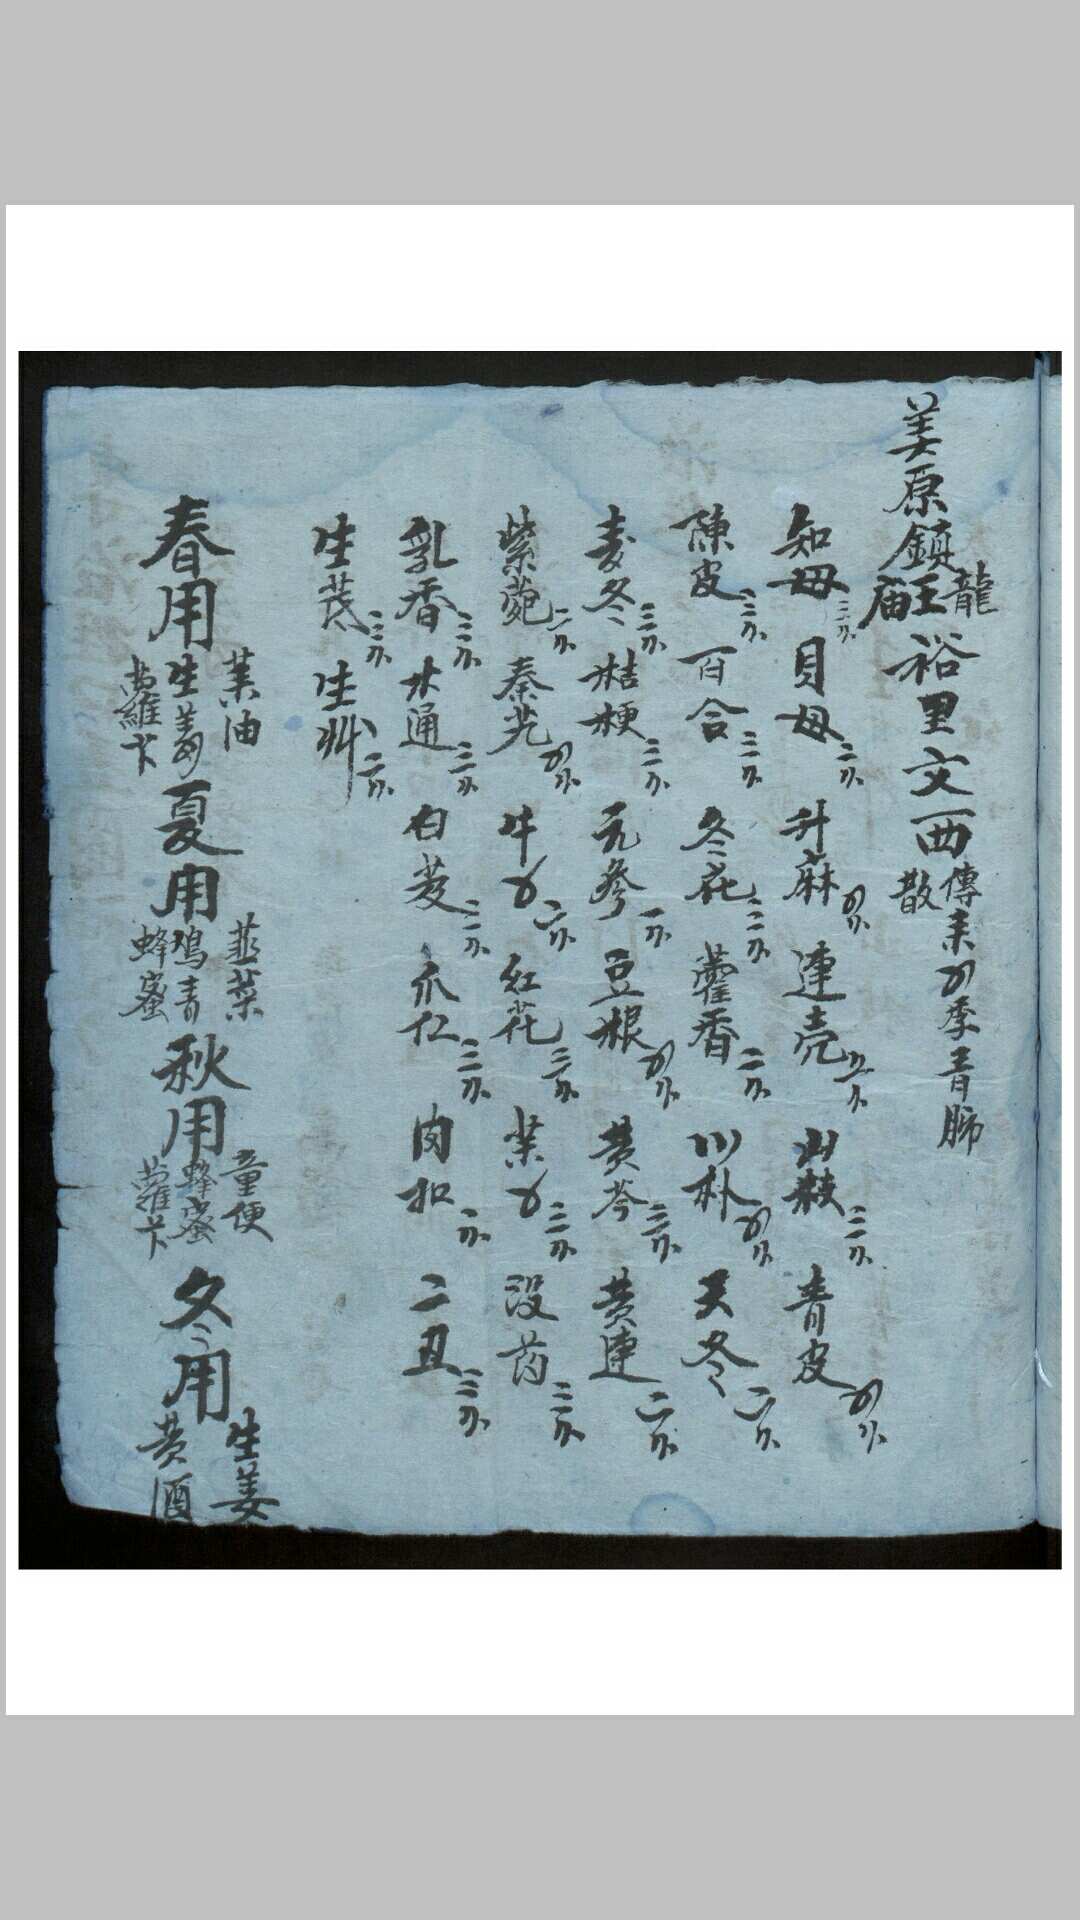 美原鎮龍王庙裕里文西傳来四季青肺散
知母三分 貝母二分 升麻四分 連壳二分 山枝三分 青皮四分
陳皮三分 百合三分 冬花三分 藿香二分 川朴四分 天冬二分
麦冬三分 桔梗三分 元參一分 豆根四分 黄芩三分 黄連二分
紫菀二分 秦艽四分 牛子二分 紅花三分 業子三分 没药三分
乳香三分 木通三分 白芨三分 爪仁三分 肉扣二分 二丑三分
生芪三分 生艸二分
春用 菜油 生姜 蘿卜 夏用 韮菜 鸡青 蜂蜜 秋用 童便 蜂蜜 蘿卜 冬用 生姜 黄酒